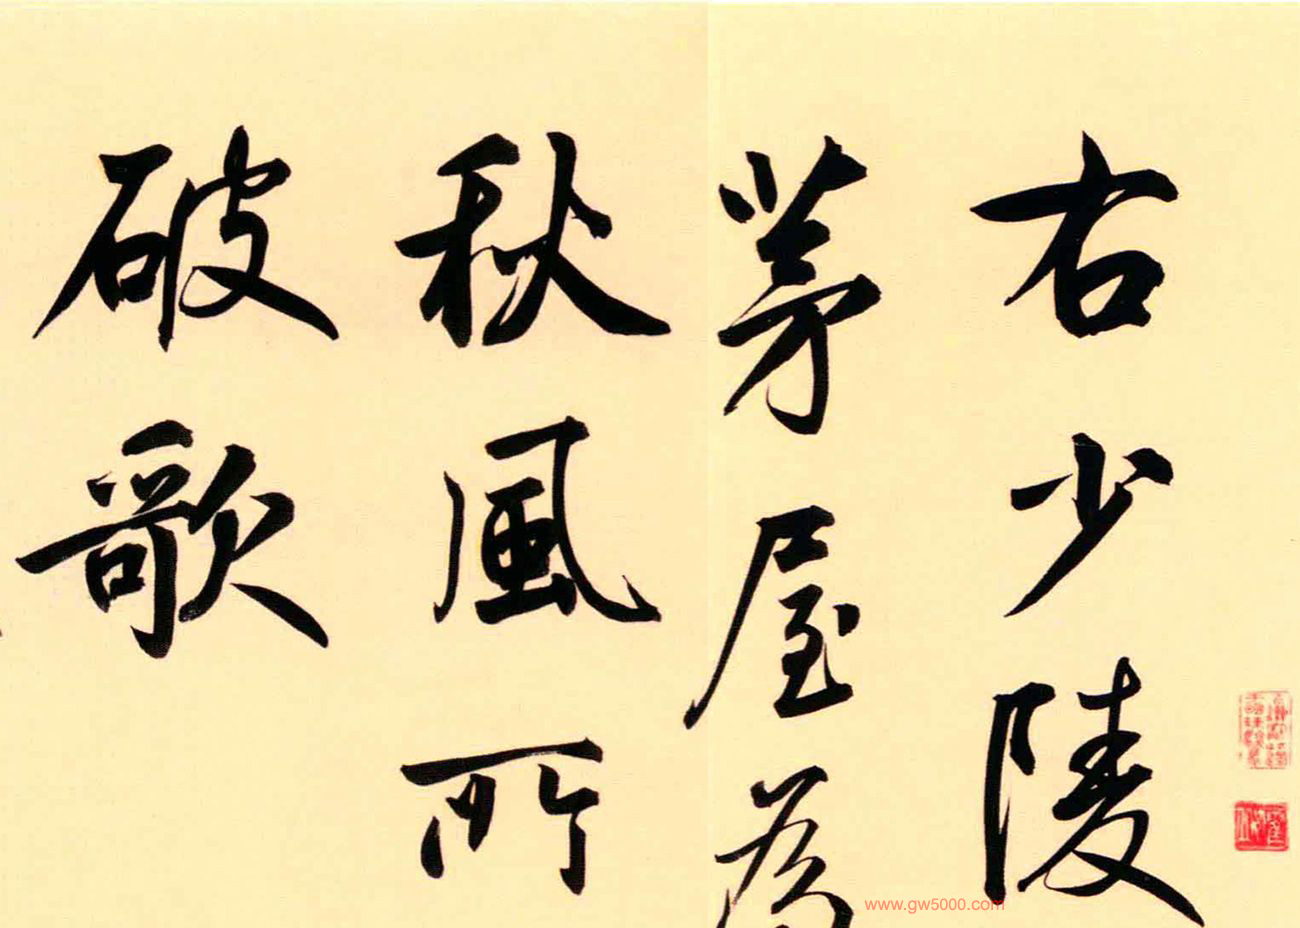 右少陵
茅屋為
秋風所
破歌
www.gw5000.com